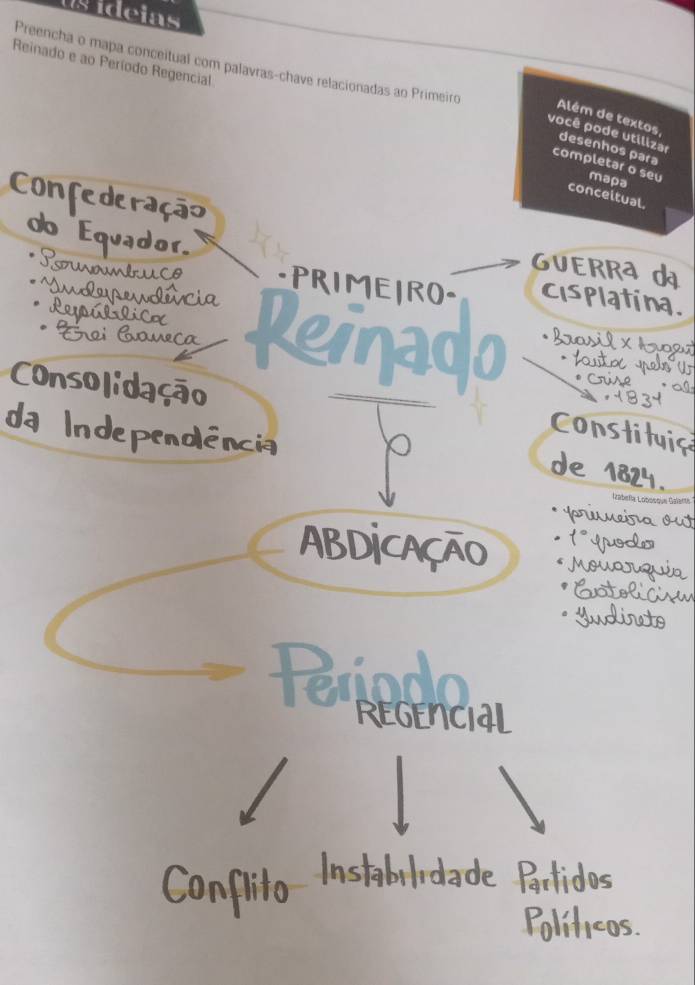 as ideias
Preencha o mapa conceitual com palavras-chave relacionadas ao Primeiro
Reinado e ao Período Regencial.
Além de textos,
você pode utilizar
desenhos para
completar o seu
mapa
conceitual.
Confederação
do Equador.
• Pernambuco
• Independência
• República
• Frei Caneca
Consolidação
da Independência
•PRIMEIRO•
Reinado
GUERRA da
CISPlatina.
• Brasil x Argent
• crise
• 1831
Constituiçã
de 1824.
Izabella Lobosque Galante
• primeira out
• 1° poder
• Monarquia
• Catolicism
• Indireto
ABDICAÇÃO
Periodo
REGENCIAL
Conflito
Instabilidade
Partidos
Políticos.